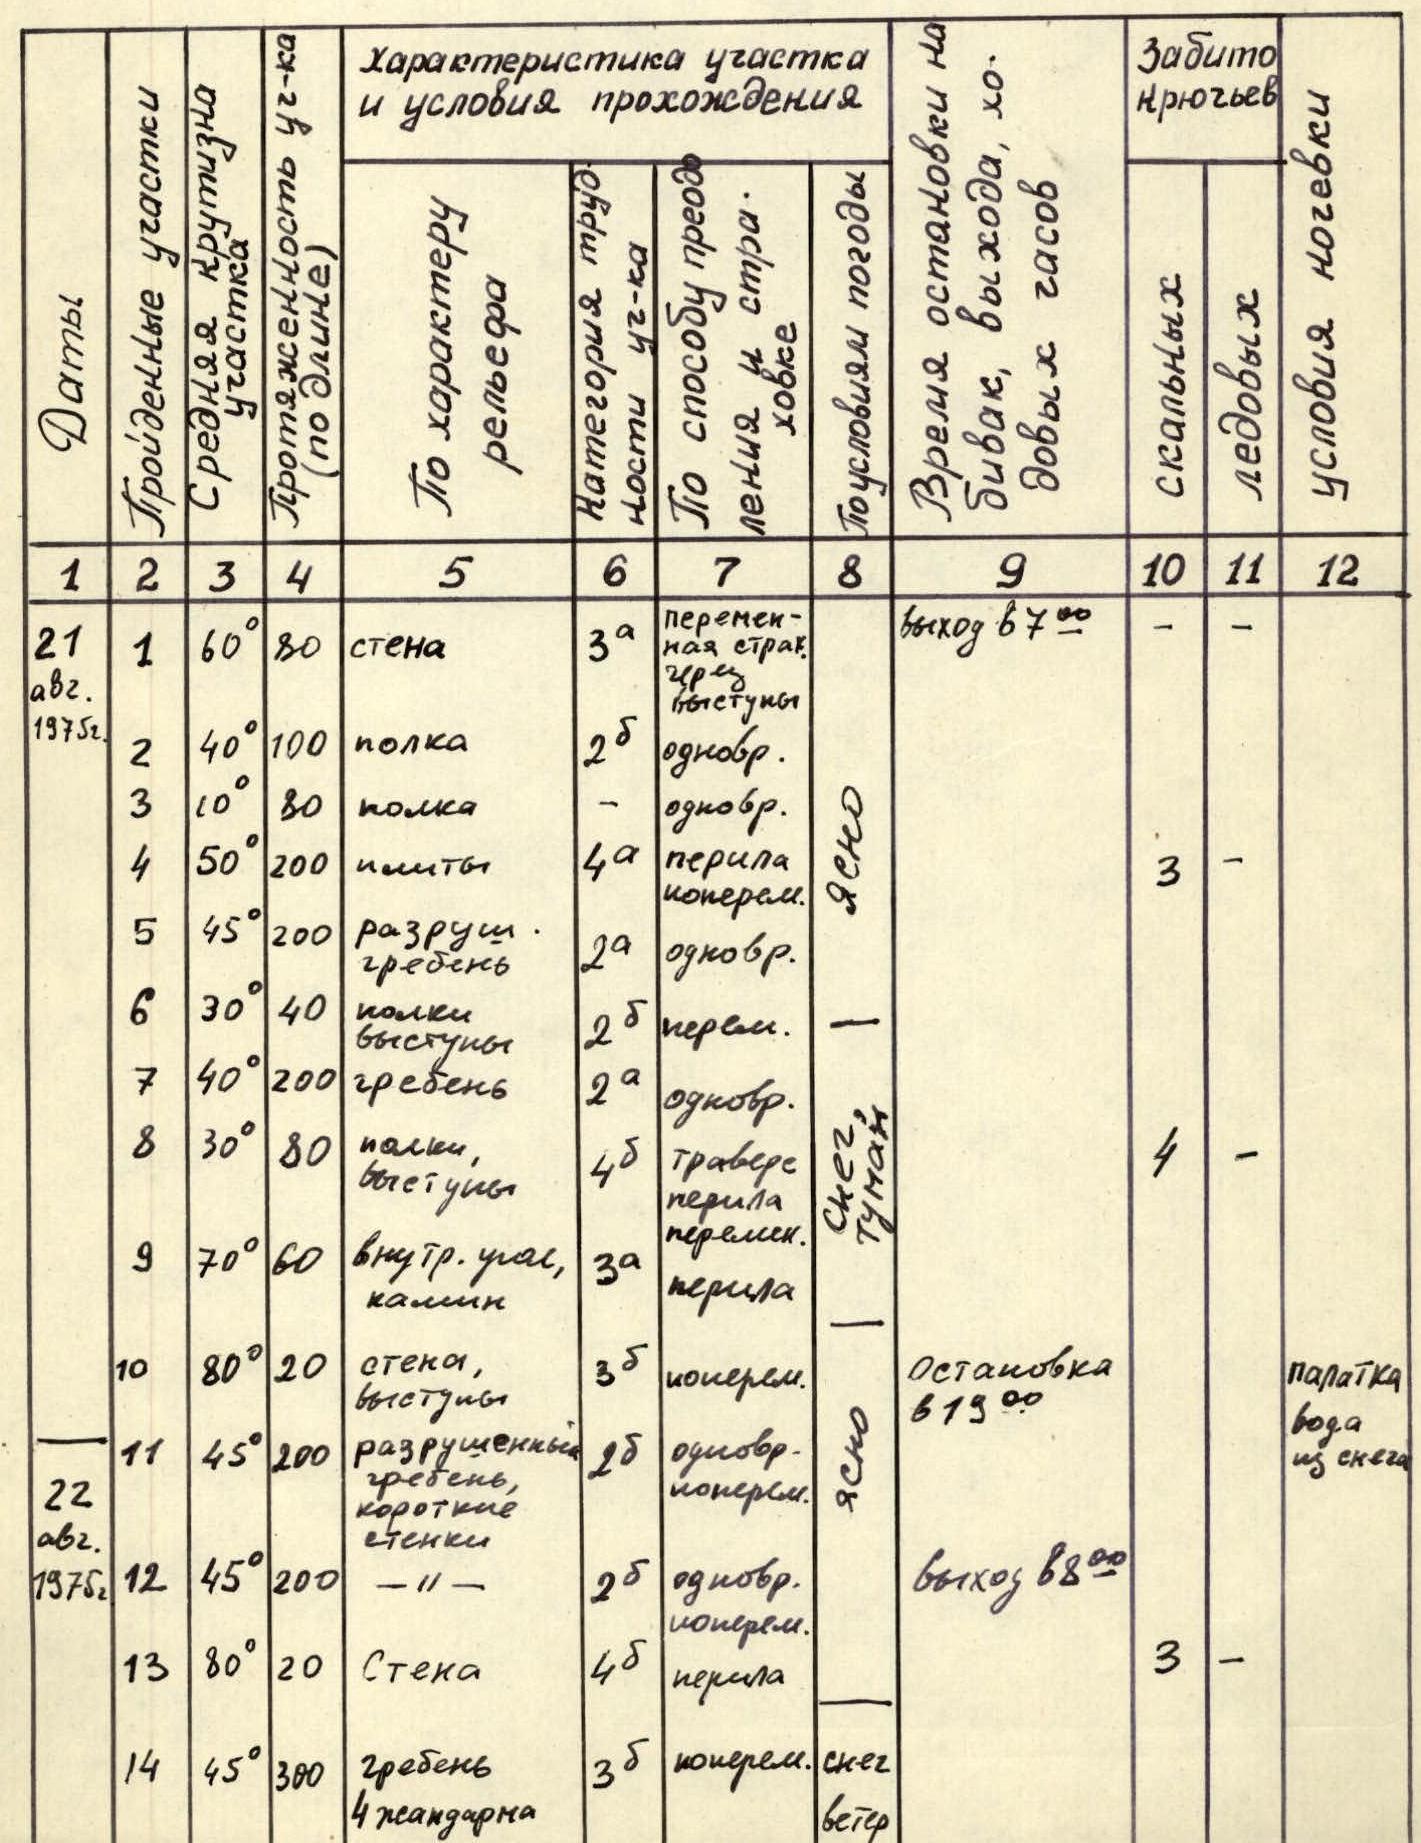 Даты
Пройденные участки
Средняя крутизна
участка
Протяженность уч-ка
(по длине)
Характеристика участка
и условия прохождения
По характеру
рельефа
Категория труд-
ности уч-ка
По способу преодо
ления и стра-
ховке
По условиям погоды
Время остановки на
бивак, выхода, хо-
довых часов
Забито
крючьев
скальных
ледовых
условия ночевки
1 2 3 4 5 6 7 8 9 10 11 12
21
авг.
1975г.
1 60° 80 стена 3а
перемен-
ная страх.
через
выступы
выход в 7 00 - -
2 40° 100 полка 2б одновр.
3 10° 80 полка - одновр.
ясно
4 50° 200 плиты 4а перила
поперем.
3 -
5 45° 200 разруш.
гребень
2а одновр.
6 30° 40 полки
выступы
2б перем.
7 40° 200 гребень 2а одновр.
снег,
туман
8 30° 80 полки,
выступы
4б траверс
перила
перемен.
4 -
9 70° 60 внутр. угол,
камин
3а перила
10 80° 20 стена,
выступы
3б поперем.
Остановка
в 19 00
палатка
вода
из снега
ясно
11 45° 200 разрушенный
гребень,
короткие
стенки
2б одновр.
поперем.
22
авг.
1975г
12 45° 200 — " — 2б одновр.
поперем.
выход в 8 00
13 80° 20 Стена 4б перила 3 -
14 45° 300 гребень
4 жандарма
3б поперем. снег
ветер